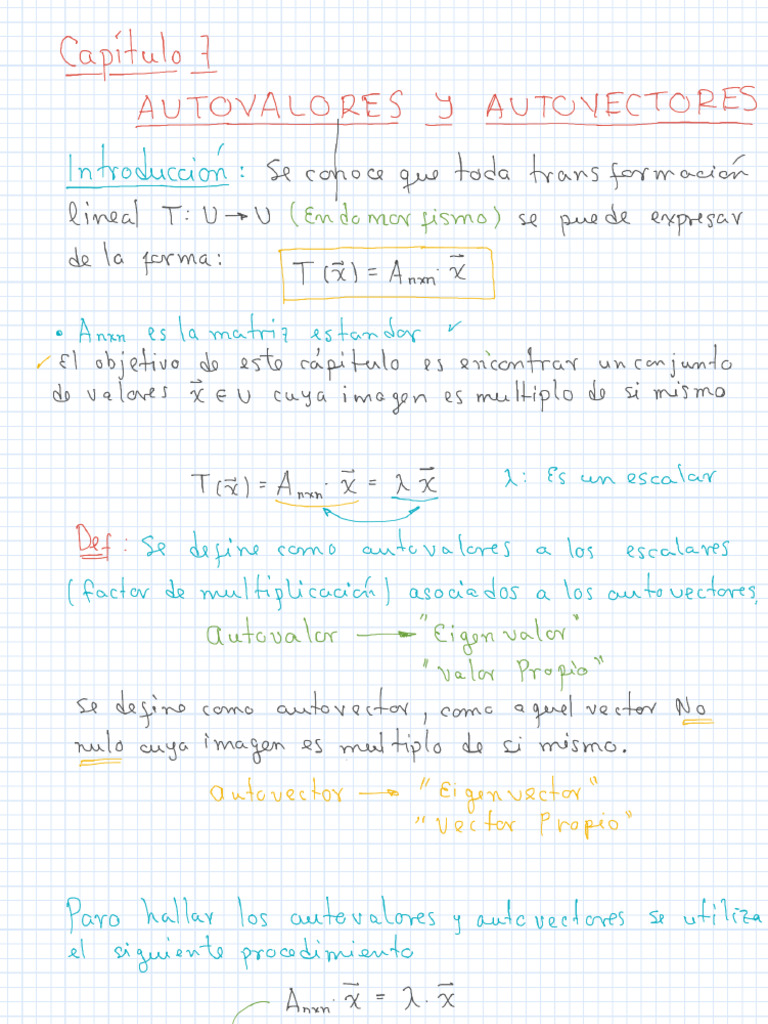 Capítulo 7
AUTOVALORES Y AUTOVECTORES
Introducción: Se conoce que toda transformación
lineal T: U → U (Endomorfismo) se puede expresar
de la forma: T(x⃗) = Anxn · x⃗
• Anxn es la matriz estandar ✓
✓ El objetivo de este cápitulo es encontrar un conjunto
de valores x⃗ ∈ U cuya imagen es multiplo de si mismo
T(x⃗) = Anxn · x⃗ = λ x⃗   λ: Es un escalar
Def: Se define como autovalores a los escalares
(factor de multiplicación) asociados a los autovectores,
Autovalor → "Eigenvalor"
"Valor Propio"
Se define como autovector, como aquel vector No
nulo cuya imagen es multiplo de si mismo.
Autovector → "Eigenvector"
"Vector Propio"
Para hallar los autovalores y autovectores se utiliza
el siguiente procedimiento
Anxn · x⃗ = λ · x⃗